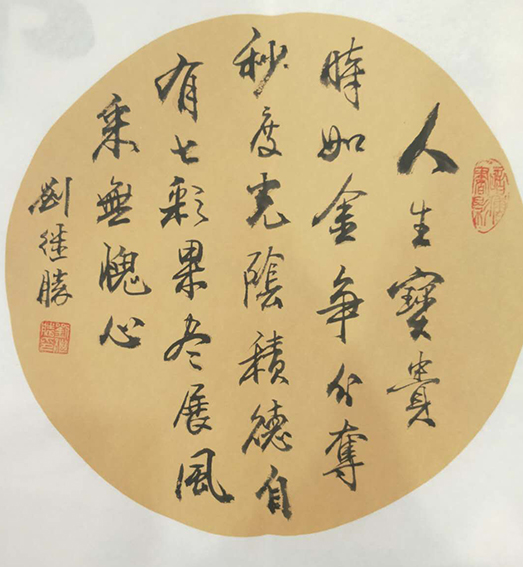 人生寶貴
時如金争分奪
秒度光陰積德自
有七彩果尽展風
采無愧心
劉继勝